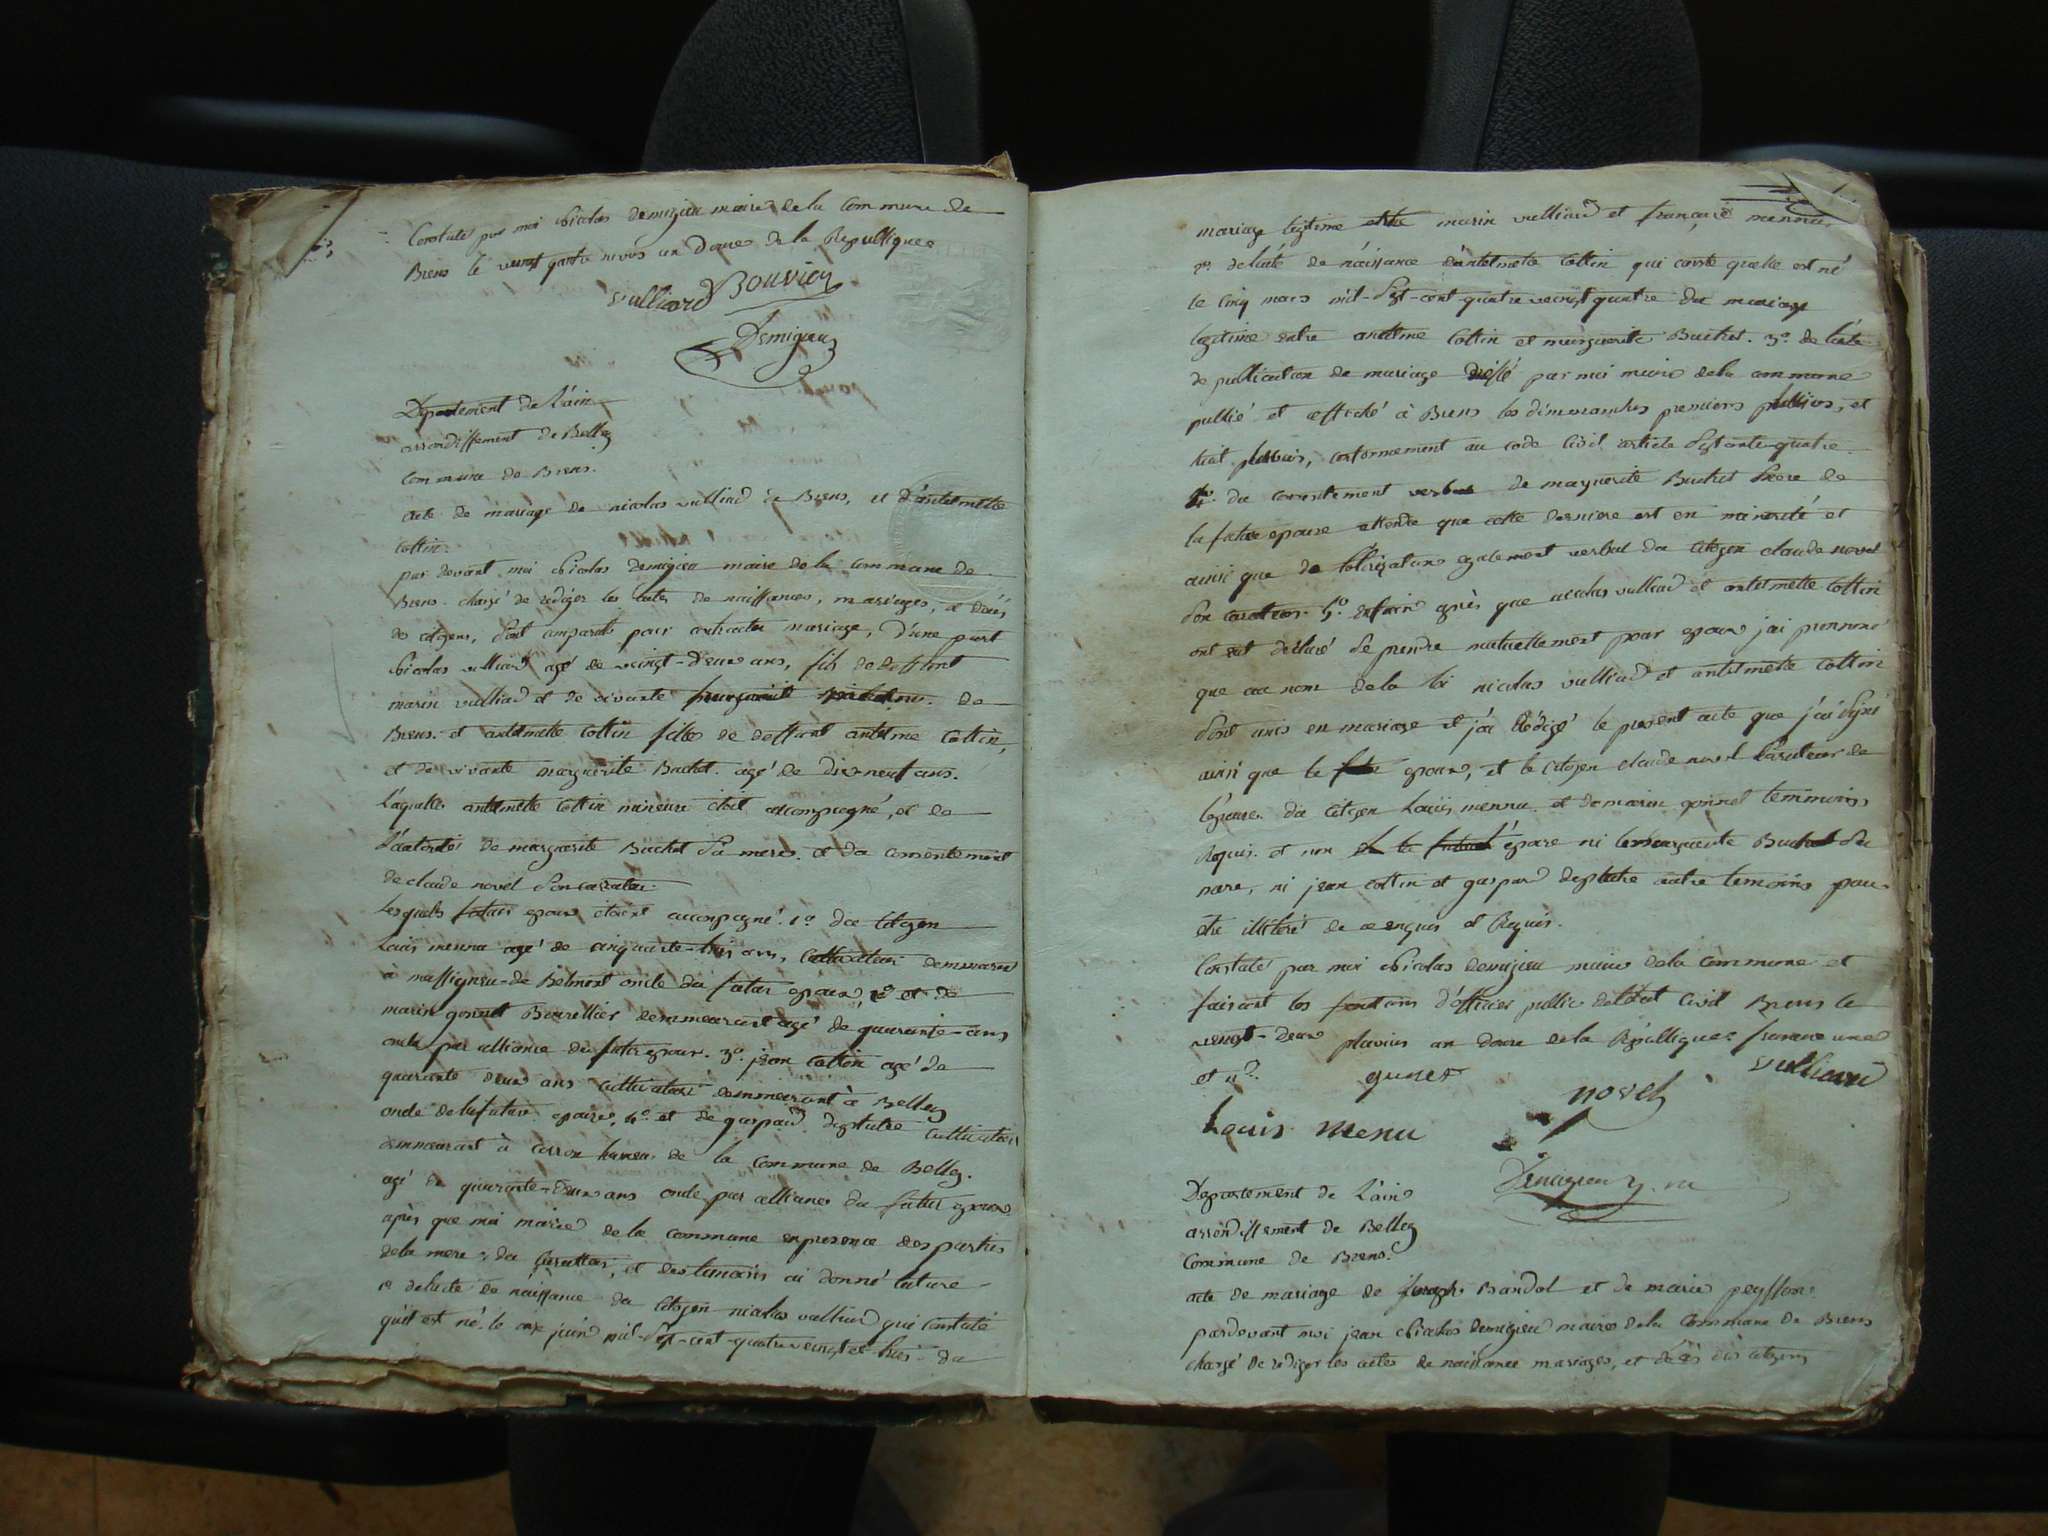 Constaté par moi Nicolas Demigieu maire de la commune de
Brens le vingt quatre nivôs an Douze de la Republique
vulliard Bouvier
Demigieu
Departement de L'ain
arrondissement de Belley
Commune de Brens.
acte de mariage de nicolas vulliard de Brens, et d'antelmette
Cottin.
par devant moi Nicolas Demigieu maire de la commune de
Brens chargé de rediger les actes de naissances, mariages, et décés,
des citoyens, sont comparüs pour contracter mariage, d'une part
Nicolas vulliard agé de veingt-deux ans, fils de deffunt
marin vulliard et de vivante de
Brens. et antelmette Cottin fille de deffunt antelme Cottin,
et de vivante marguerite Buchet. agé de dix neuf ans.
Laquelle antelmette Cottin mineure étoit accompagné, et de
L'autorité de marguerite Buchet Sa mere. et du consentement
de claude novel Son curateur.
Lesquels futurs epoux étoient accompagné. 1º du Citoyen
Loüis mennu agé de cinquante-trois ans, Cultivateur demmeurant
à massigneu-de Belmont oncle du futur epoux, 2º et de
marin gonnet Bourellier demmeurant agé de quarante-ans
oncle par alliance du futur epoux. 3º jean Cottin agé de
quarante deux ans cultivateur demmeurant à Belley
oncle de la future epouse, 4º et de gaspard deplatre cultivateur
demmeurant à coron hameau de la commune de Belley.
agé de quarante-deux ans oncle par alliance du futur epoux
après que moi maire de la commune en presence des parties
de la mere, du Curatteur, et des temoins ai donné lecture
1º de l'acte de náissance du Citoyen nicolas vulliard qui Constate
qu'il est né le onze juin mil-Sept-cent-quatre veingt et trois du
mariage legitime entre marin vulliard et françoise mennu.
2º de l'acte de náissance d'antelmette Cottin qui conste qu'elle est né
le cinq mars mil-Sept-cent-quatre veingt quatre du mariage
legitime entre antelme Cottin et marguerite Buchet. 3º de l'acte
de publication de mariage dréssé par moi maire de la commune
publié et affiché à Brens les dimmanches premiers pluviôs, et
huit pluviôs, conformement au code Civil article Septante-quatre.
4º du consentement verbal de marguerite Buchet Mere de
la future epouse attendu que cette derniere est en minorité et
ainsi que de également verbal du Citoyen claude novel
Son curateur. 5º enfin après que nicolas vulliard et antelmette Cottin
ont eut déclaré Se prendre mutuellement pour epoux j'ai prononcé
que au nom de la loi nicolas vulliard et antelmette Cottin
Sont unis en mariage et j'ai Rédigé le present acte que j'ai Signé
ainsi que le epoux, et le Citoyen claude novel Curateur de
l'epouse du Citoyen Loüis mennu et de marin gonnet temmoins
Requis. et non epouse ni marguerite Buchet Sa
mere, ni jean Cottin et gaspard deplatre autre temoins pour
être illitéré de ce enquis et Requis.
Constaté par moi Nicolas Demigieu maire de la commune et
faisant les fonctions d'officier public de l'état Civil Brens le
veingt-deux pluvios an douze de la Republique francaise une
et ie.
gunet novel vulliard
Louis menu
Demigieu m
Departement de L'ain
arrondissement de Belley
Commune de Brens.
acte de mariage de joseph Bandol et de marie peysson.
pardevant moi jean Nicolas Demigieu maire de la Commune de Brens
chargé de rediger les actes de naissance mariages, et décés des citoyens